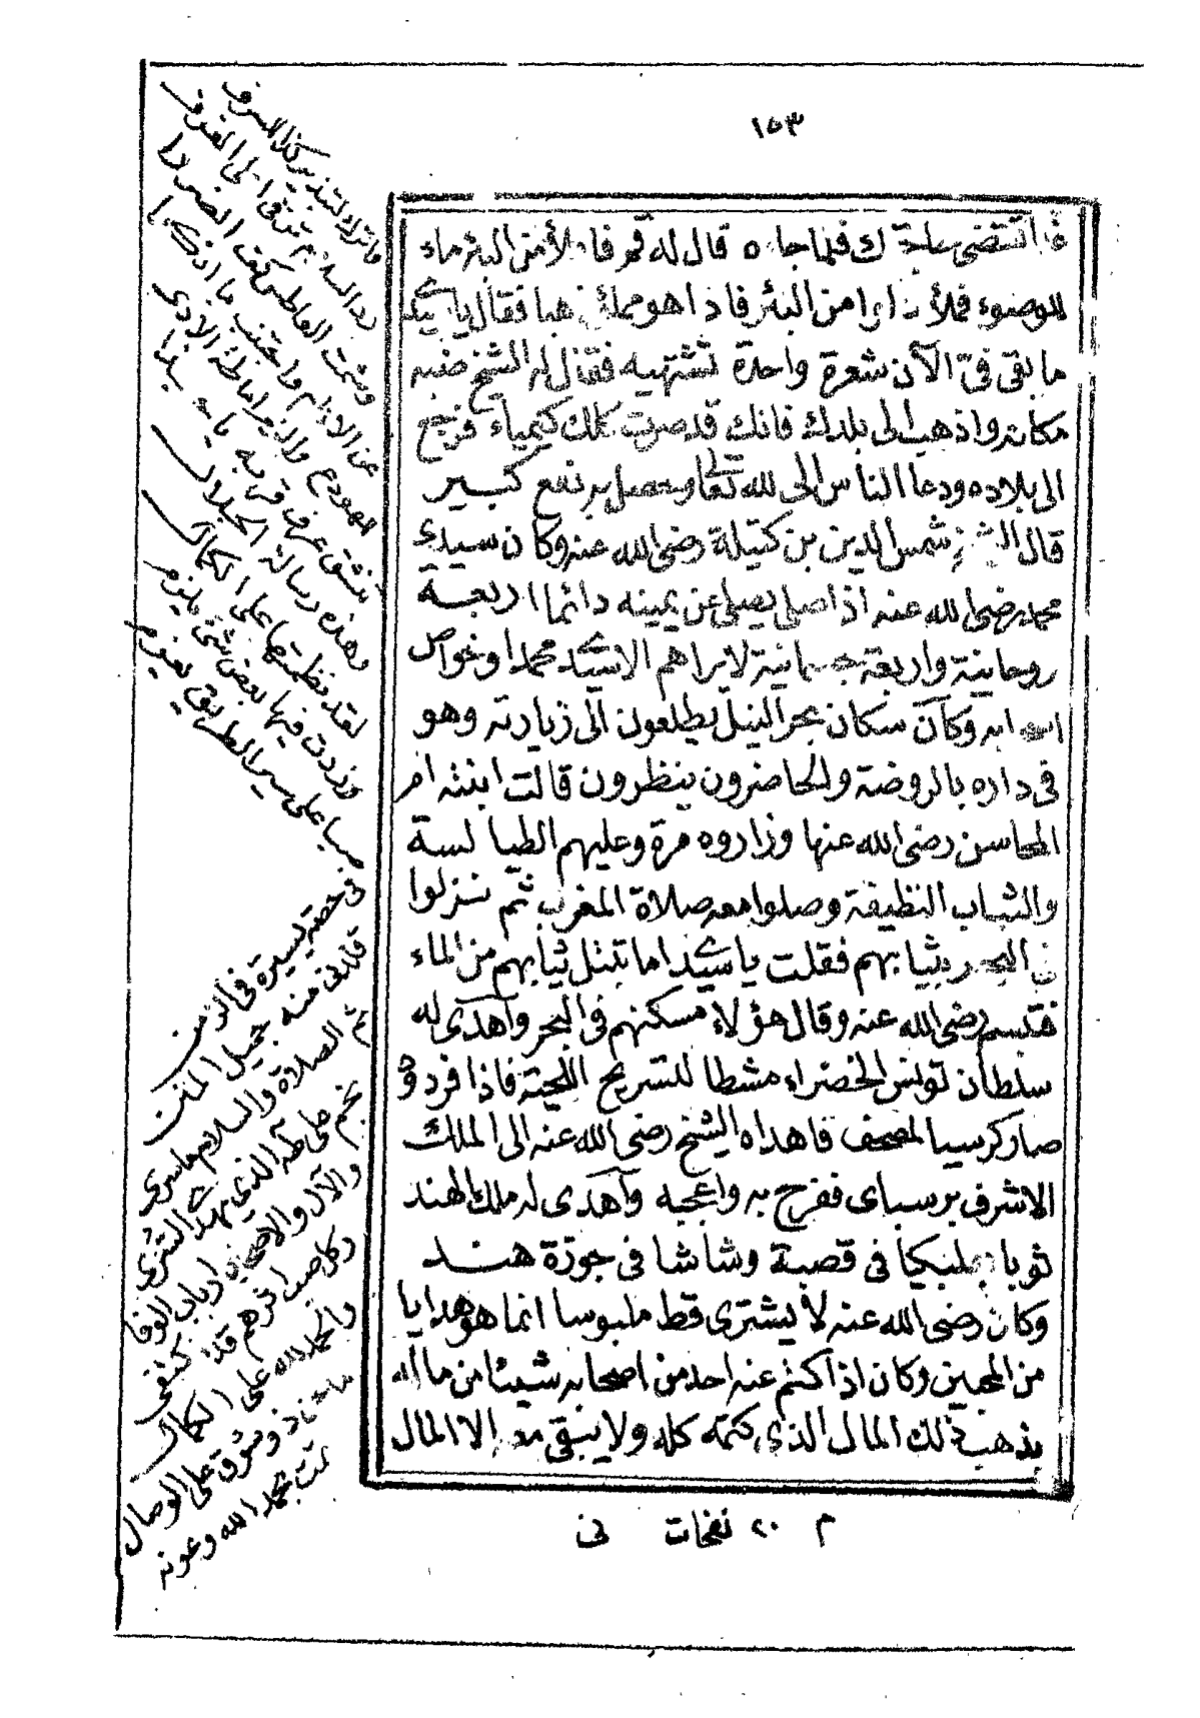 ١٥٣
تنقضى حاجتك فلما جاءه قال له قم فاملأ من البئر ماء
للوضوء فملأ من البئر فاذا هو ذهبا فقال يا سيدى
ما بقى فى الآن شعرة واحدة تشتهيه فقال له الشيخ صبه
مكانه واذهب الى بلدك فانك قد صرت كلك كيمياء فرجع
الى بلاده ودعا الناس الى الله تعالى وحصل به نفع كبير
قال الشيخ شمس الدين بن كتيلة رضى الله عنه وكان سيدى
محمد رضى الله عنه اذا صلى يصلى عن يمينه دائما اربعة
روحانية واربعة جسمانية لا يراهم الا سيدى محمد او خواص
اصحابه وكان سكان بحر النيل يطلعون الى زيارته وهو
فى داره بالروضة والحاضرون ينظرون قالت ابنته ام
المحاسن رضى الله عنها وزاروه مرة وعليهم الطيالسة
والثياب النظيفة وصلوا معه صلاة المغرب ثم نزلوا
فى البحر بثيابهم فقلت يا سيدى اما تبتل ثيابهم من الماء
فتبسم رضى الله عنه وقال هؤلاء مسكنهم فى البحر وأهدى له
سلطان تونس الخضراء مشطا لتسريح اللحية فاذا فردوه
صار كرسيا للمصحف فاهداه الشيخ رضى الله عنه الى الملك
الاشرف برسباى ففرح به واعجبه وأهدى له ملك الهند
ثوبا بعلبكيا فى قصبة وشاشا فى جوزة هند
وكان رضى الله عنه لا يشترى قط ملبوسا انما هو هدايا
من المحبين وكان اذا كتم عنه احد من اصحابه شيئا من ماله
يذهب ذلك المال الذى كتمه كله ولا يبقى معه الا المال
م ٢٠ نفحات نى
رد السلام
وشمت العاطس كف الضررا
عن الانام واجتنب ما
والزم اماطة الاذى
وهذه رسالة الجلال
لقد نظمتها على الكمال
وزدت فيها بعض شئ يلزم
على سير الطريق
فى حصة يسيرة فى الزمن
قلاتى منه جميل المنن
ثم الصلاة والسلام
على طه الذى
والآل والاصحاب ارباب الوفا
وكل من لاثرهم قد كتفى
والحمد لله على الكمال
وشوق على الوصال
تمت بحمد الله وعونه